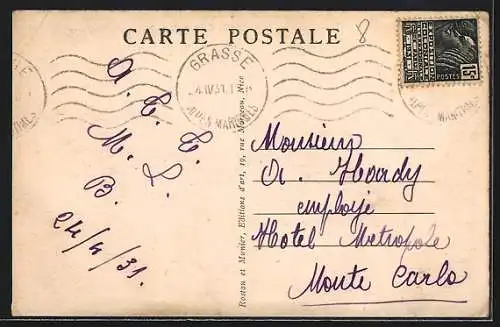 CARTE POSTALE
8
GRASSE
ALPES MARITIMES
POSTES
15c
A. C. C.
M. L.
B.
24/4/31.
Rostan et Munier, Editions d'art, 19, rue Nice
Monsieur
A. Hardy
employé
Hotel Metropole
Monte Carlo